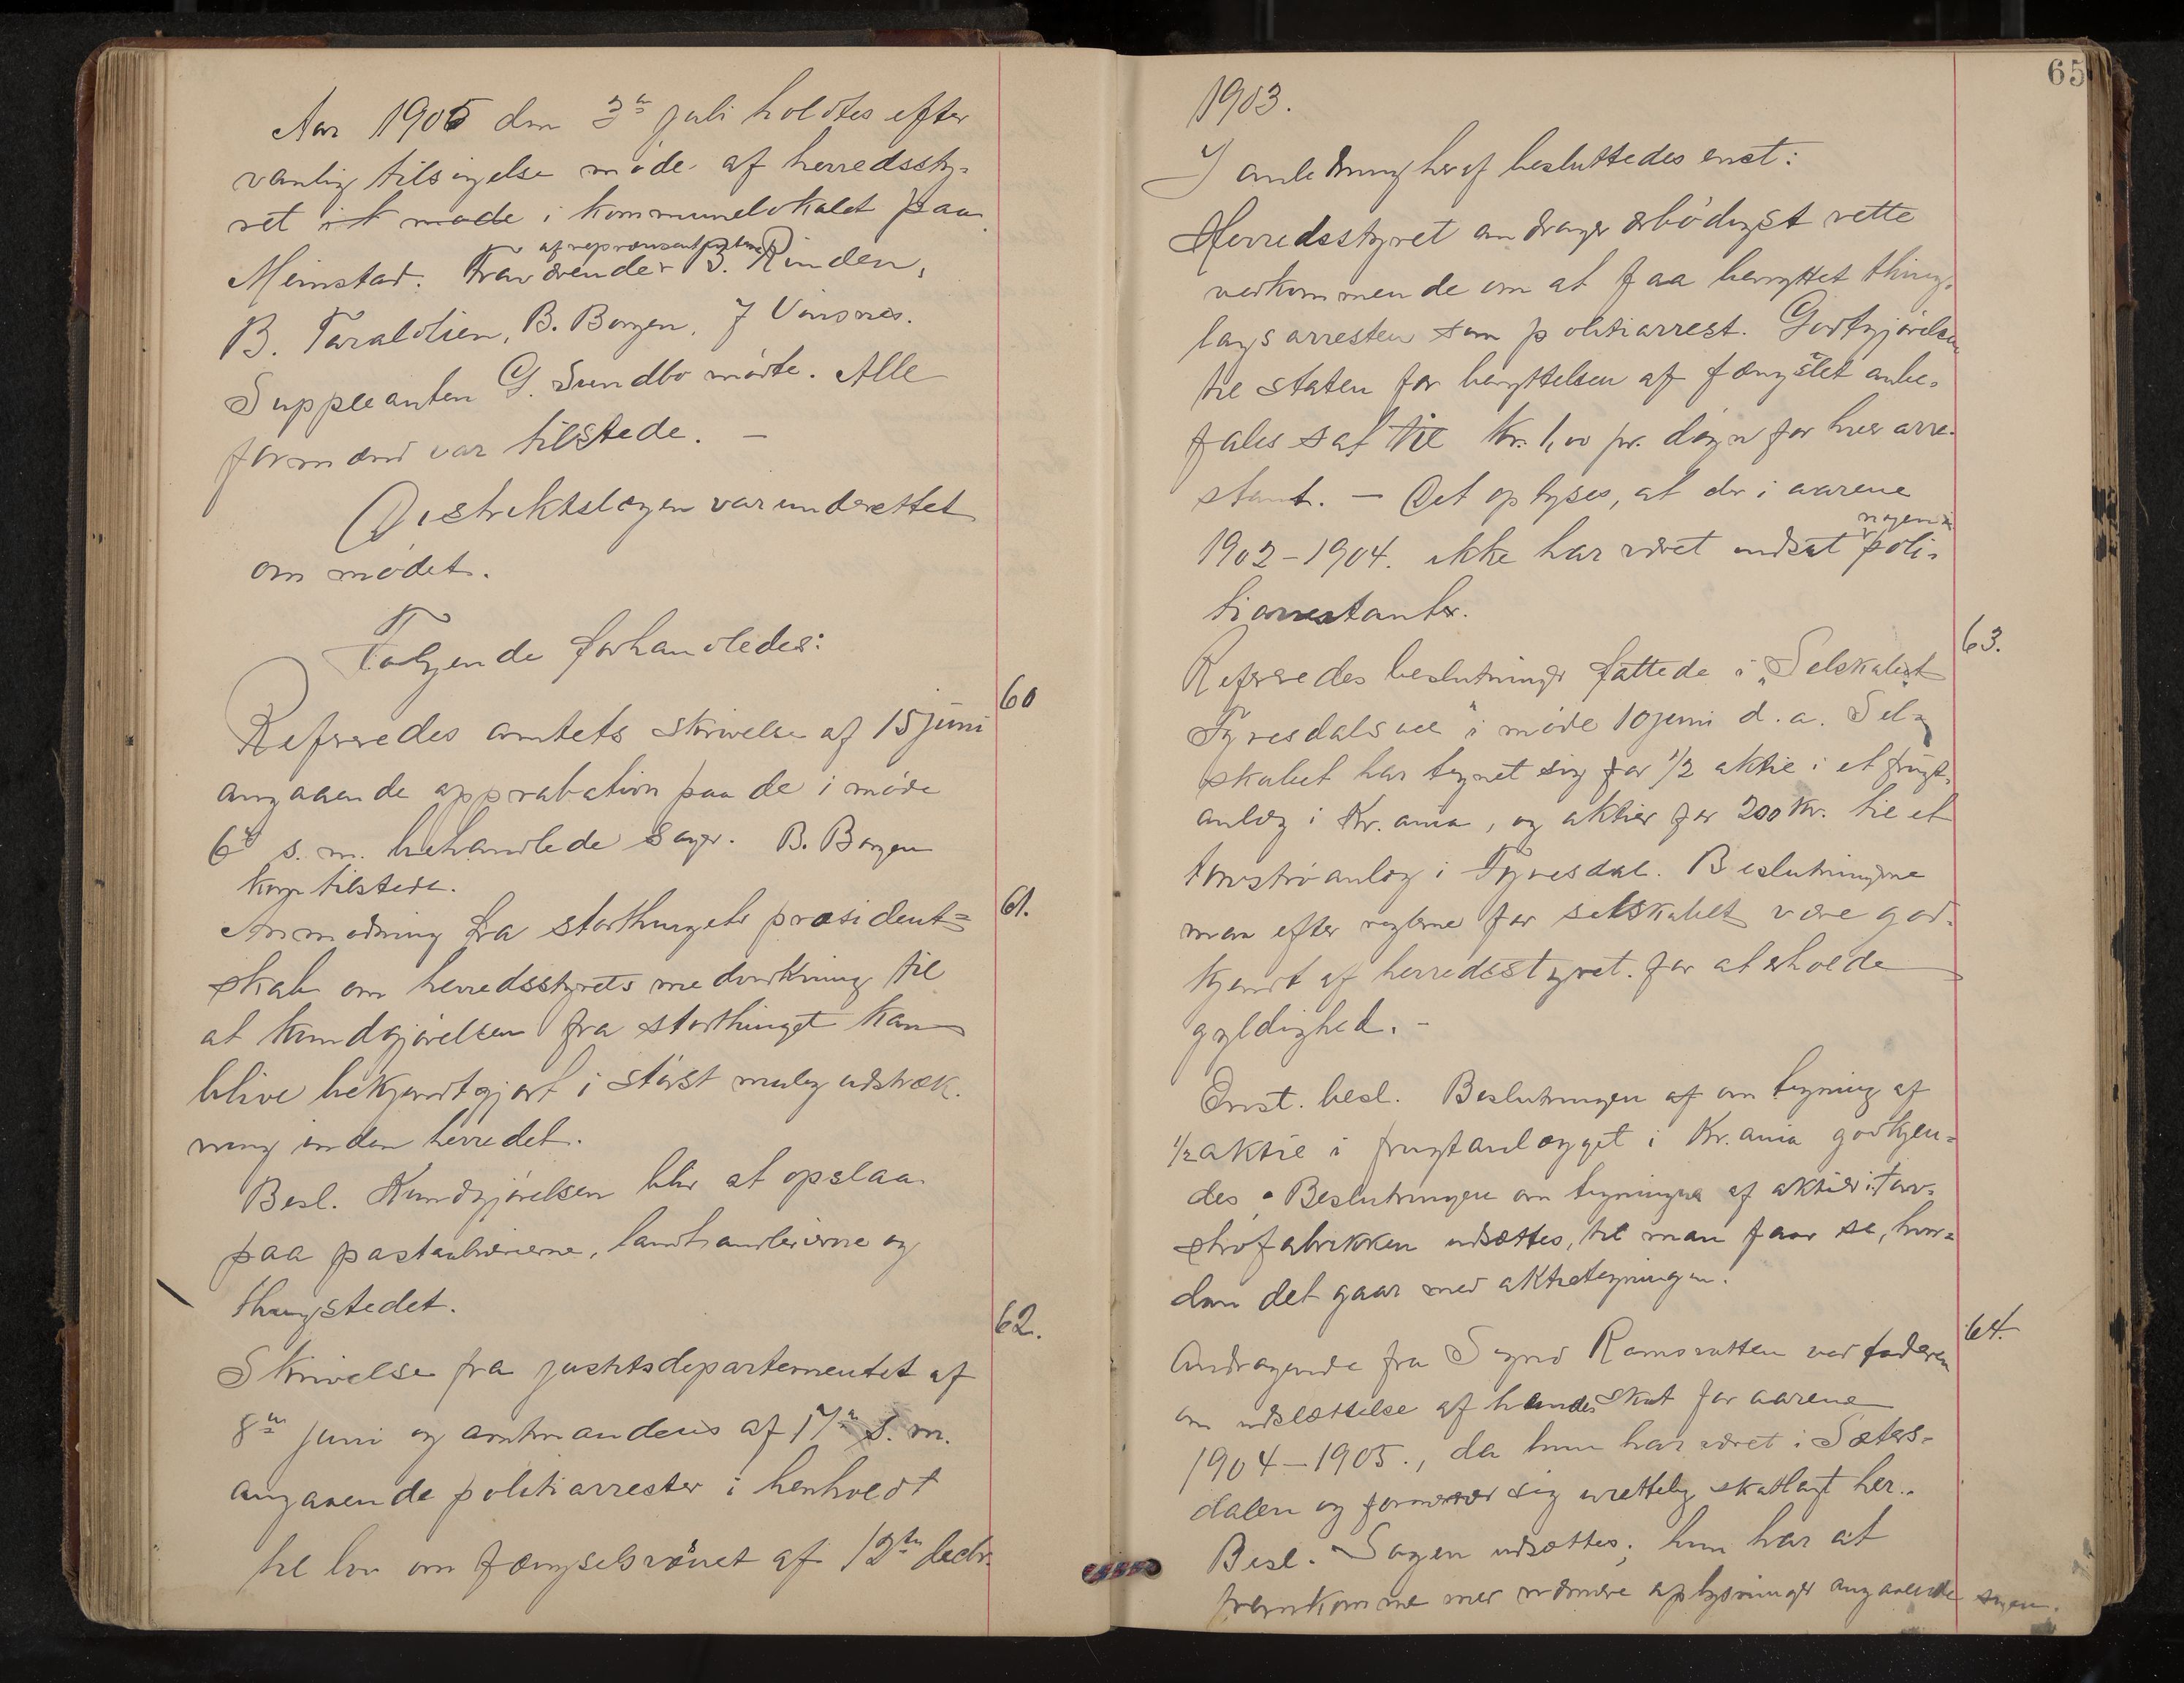 Aar 1905 den 3die juli holdtes efter
vanlig tilsigelse møde af herredssty-
ret it møde i kommunelokalet paa
af repræsentanterne
Meinstad. Fraværender B. Rinden,
B. Taraldlien, B. Borgen, J Vinsnes.
Suppleanten G. Sundbø mødte. Alle
formænd var tilstede. —
Distriktslægen var underrettet
om mødet.
Følgende forhandledes:
60
Refereredes amtets skrivelse af 15 juni
angaaende approbation paa de i møde
6te s. m. behandlede sager. B. Borgen
kom tilstede.
61.
Anmodning fra storthingets præsident=
skab om herredsstyrets medvirkning til
at kundgjørelsen fra storthinget kan
blive bekjendtgjort i størst mulig udstræk-
ning inden herredet.
Besl. Kundgjørelsen blir at opslaa
paa postaabnerierne, landhandlerierne og
thingstedet.
62.
Skrivelse fra justitsdepartementet af
8de juni og amtmandens af 17de s. m.
angaaende politiarrester i henhold
til lov om fængselsvæsnet af 12te decbr.
65
1903.
I anledning heraf besluttedes enst:
Herredsstyret andrager ærbødigst rette
vedkommende om at faa benyttet thing-
lagsarresten som politiarrest. Godtgjørelsen
til staten for benyttelsen af fængslet anbe-
fales sat til kr. 1,00 pr. døgn for hver arre-
stant. — Det oplyses, at der i aarene
1902-1904. ikke har været indsat poli-
tiarrestanter.
63.
Refereredes beslutninger fattede i "Selskabet
Tyresdals vel" i møde 10 juni d. a. Sel-
skabet har tegnet sig for 1/2 aktie i et frugt-
anlæg i Kr.ania, og aktier for 200 kr. til et
torvstrøanlæg i Tyresdal. Beslutningerne
maa efter reglerne for selskabet være god-
kjendt af herredsstyret for at erholde
gyldighed. -
Enst. besl. Beslutningen af om tegning af
1/2 aktie i frugtanlægget i Kr.ania godkjen-
des. Beslutningen om tegningen af aktier i torv-
strøfabrikken udsættes, til man faar se, hvor-
dan det gaar med aktietegningen.
64.
Andragende fra Signe ved faderen
om udslettelse af hendes skat for aarene
1904-1905., da hun har været i Sæters-
dalen og formener sig urettelig skatlagt her.
Besl. Sagen udsættes; hun har at
fremkomme med nærmere oplysninger angaaende sagen.